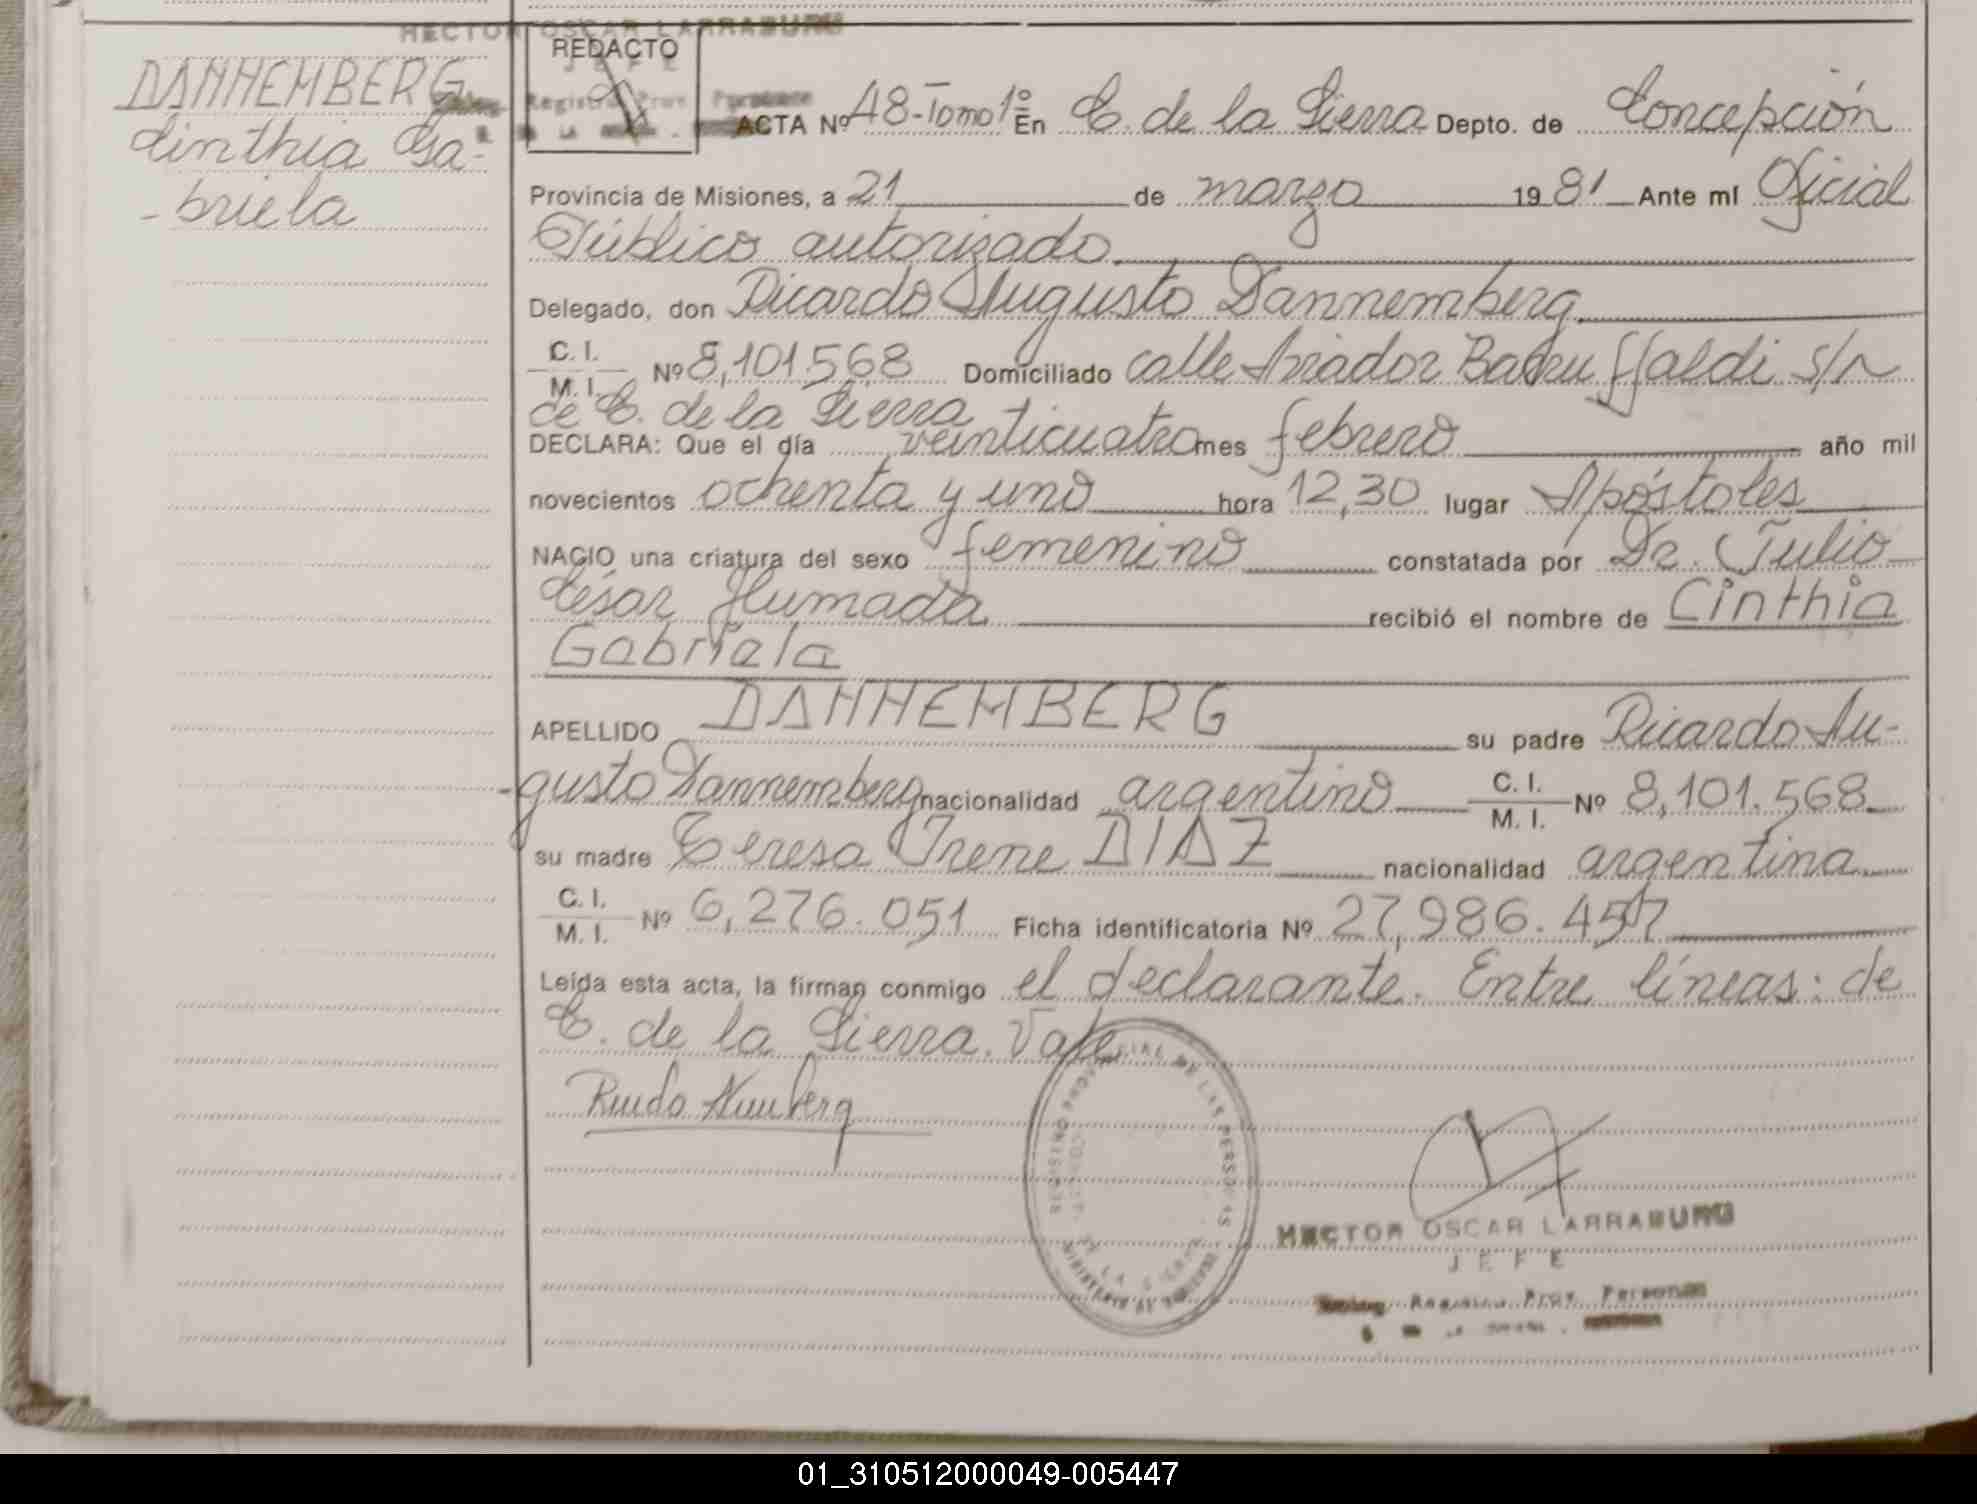 HECTOR OSCAR LARRABURU
REDACTO
JEFE
DANNEMBERG
Cinthia Ga-
-briela
Registro Prov. Personas
ACTA Nº 48-Tomo 1º En C. de la Sierra Depto. de Concepción
Provincia de Misiones, a 21 de marzo 1981 Ante mí Oficial
Público autorizado
Delegado, don Ricardo Augusto Dannemberg
C. I.
M. I. Nº 8,101.568 Domiciliado calle Aviador Barruffaldi s/n
de C. de la Sierra
DECLARA: Que el día veinticuatro mes febrero año mil
novecientos ochenta y uno hora 12,30 lugar Apóstoles
NACIO una criatura del sexo femenino constatada por Dr. Julio
César Humada recibió el nombre de Cinthia
Gabriela
APELLIDO DANNEMBERG su padre Ricardo Au-
-gusto Dannemberg nacionalidad argentino C. I.
M. I. Nº 8,101.568
su madre Teresa Irene DIAZ nacionalidad argentina
C. I.
M. I. Nº 6,276.051 Ficha identificatoria Nº 27,986.457
Leída esta acta, la firman conmigo el declarante. Entre líneas: de
C. de la Sierra. Vale
REGISTRO PROVINCIAL DE LAS PERSONAS
HECTOR OSCAR LARRABURU
JEFE
Registro Prov. Personas
01_310512000049-005447